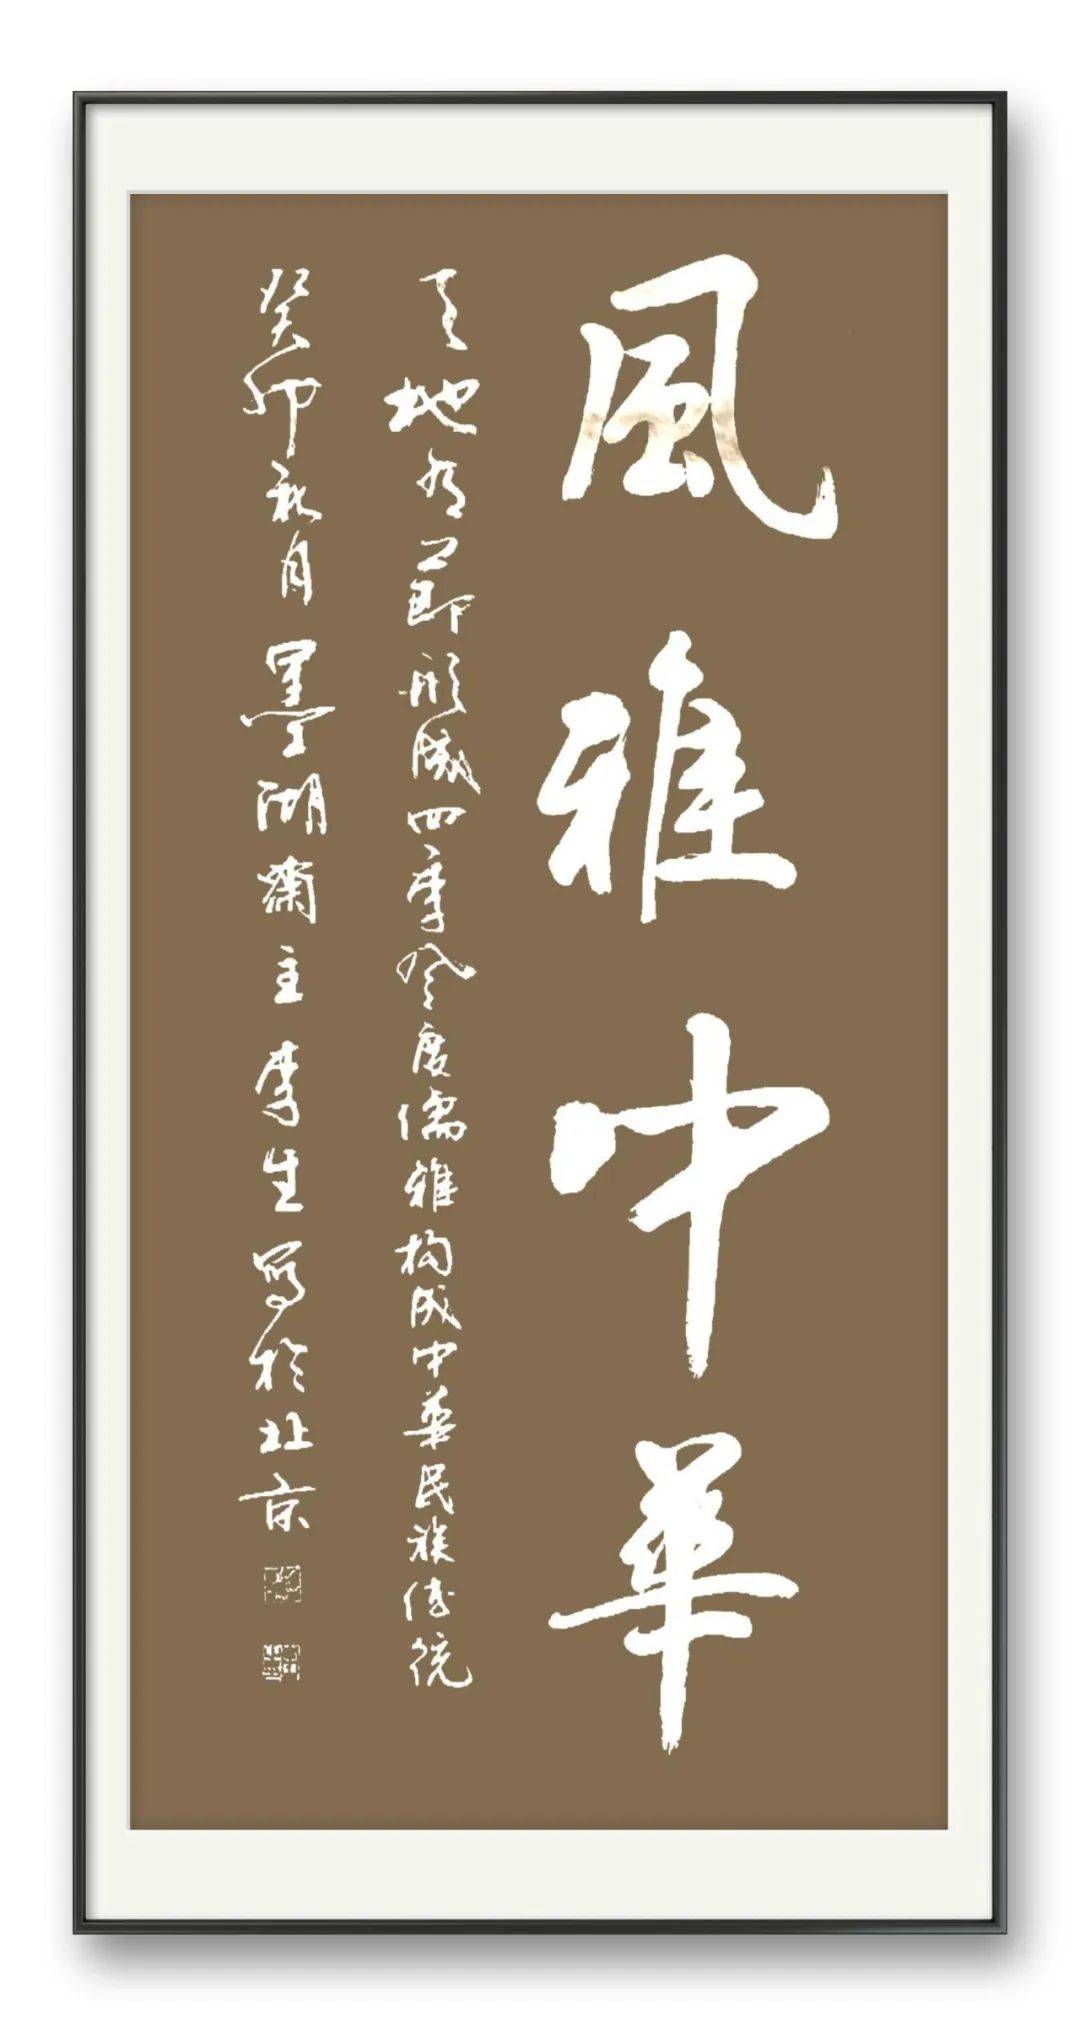 風雅中華
天地有節形成四季風度儒雅构成中華民族传统
癸卯秋月墨湖齋主李生寫於北京